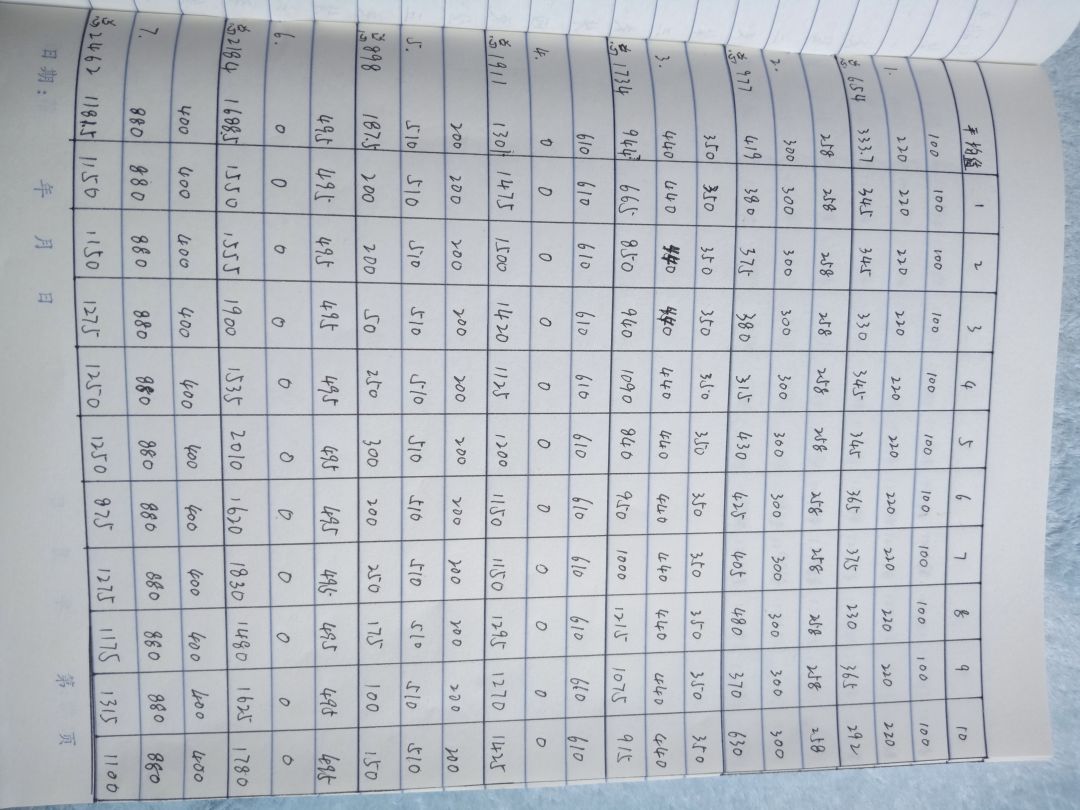 平均值 1 2 3 4 5 6 7 8 9 10
100 100 100 100 100 100 100 100 100 100 100
1. 220 220 220 220 220 220 220 220 220 220 220
总654 333.7 345 345 330 345 345 365 375 230 365 292
258 258 258 258 258 258 258 258 258 258 258
2. 300 300 300 300 300 300 300 300 300 300 300
总977 419 380 375 380 315 430 425 405 480 370 630
350 350 350 350 350 350 350 350 350 350 350
3. 440 440 440 440 440 440 440 440 440 440 440
总1734 944 665 850 940 1090 840 950 1000 1215 1075 915
610 610 610 610 610 610 610 610 610 610 610
4. 0 0 0 0 0 0 0 0 0 0 0
总1911 1301 1475 1500 1420 1125 1200 1150 1150 1295 1270 1425
200 200 200 200 200 200 200 200 200 200 200
5. 510 510 510 510 510 510 510 510 510 510 510
总898 187.5 200 200 50 250 300 200 250 175 100 150
495 495 495 495 495 495 495 495 495 495 495
6. 0 0 0 0 0 0 0 0 0 0 0
总2184 1688.5 1550 1555 1900 1535 2010 1620 1830 1480 1625 1780
400 400 400 400 400 400 400 400 400 400 400
7. 880 880 880 880 880 880 880 880 880 880 880
总2462 1181.5 1150 1150 1275 1250 1250 875 1275 1175 1315 1100
日期: 年 月 日 第 页